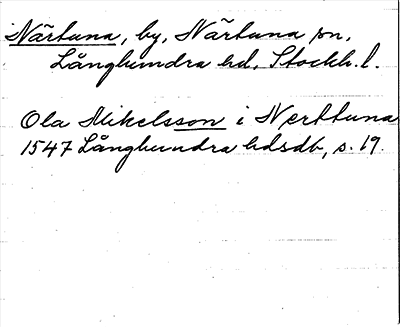 Närtuna, by, Närtuna sn,
Långhundra hd, Stockh. l.
Ola Mikelsson i Nerttuna
1547 Långhundra hdsdb, s. 19.